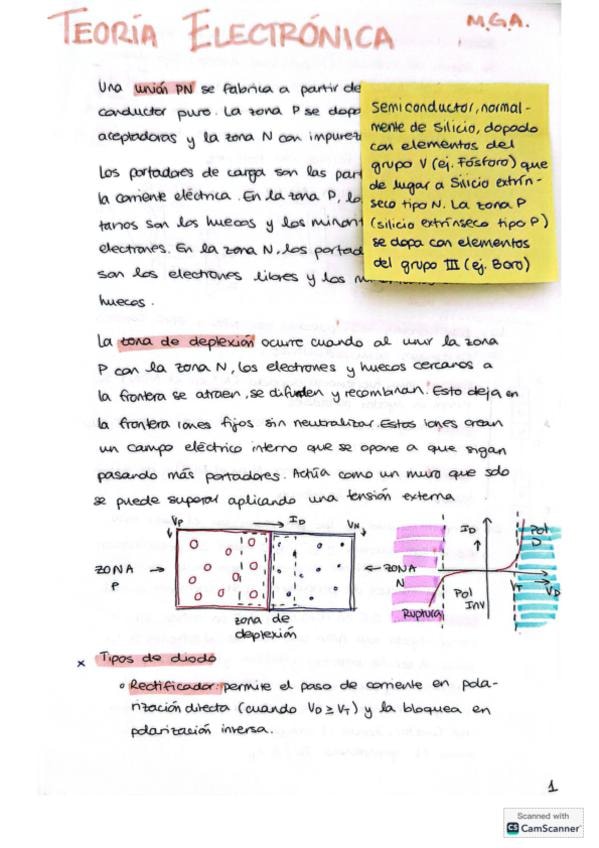 TEORÍA ELECTRÓNICA
M.G.A.
Una unión PN se fabrica a partir de
conductor puro. La zona P se dopa
aceptadoras y la zona N con
Semiconductor, normal-
mente de Silicio, dopado
con elementos del
grupo V (ej. Fósforo) que
de lugar a Silicio extrín-
seco tipo N. La zona P
(silicio extrínseco tipo P)
se dopa con elementos
del grupo III (ej. Boro)
Los portadores de carga son las
la corriente eléctrica. En la zona P,
tarios son los huecos y los
electrones. En la zona N, los
son los electrones libres y los
huecos.
La zona de deplexión ocurre cuando al unir la zona
P con la zona N, los electrones y huecos cercanos a
la frontera se atraen, se difunden y recombinan. Esto deja en
la frontera iones fijos sin neutralizar. Estos iones crean
un campo eléctrico interno que se opone a que sigan
pasando más portadores. Actúa como un muro que solo
se puede superar aplicando una tensión externa
VP
ID
VN
ZONA
P
ZONA
N
zona de
deplexión
ID
Pol
D
VT
VD
Pol
Inv
Ruptura
x Tipos de diodo
Rectificador: permite el paso de corriente en pola-
rización directa (cuando VD ≥ VT) y la bloquea en
polarización inversa.
1
Scanned with
CS CamScanner